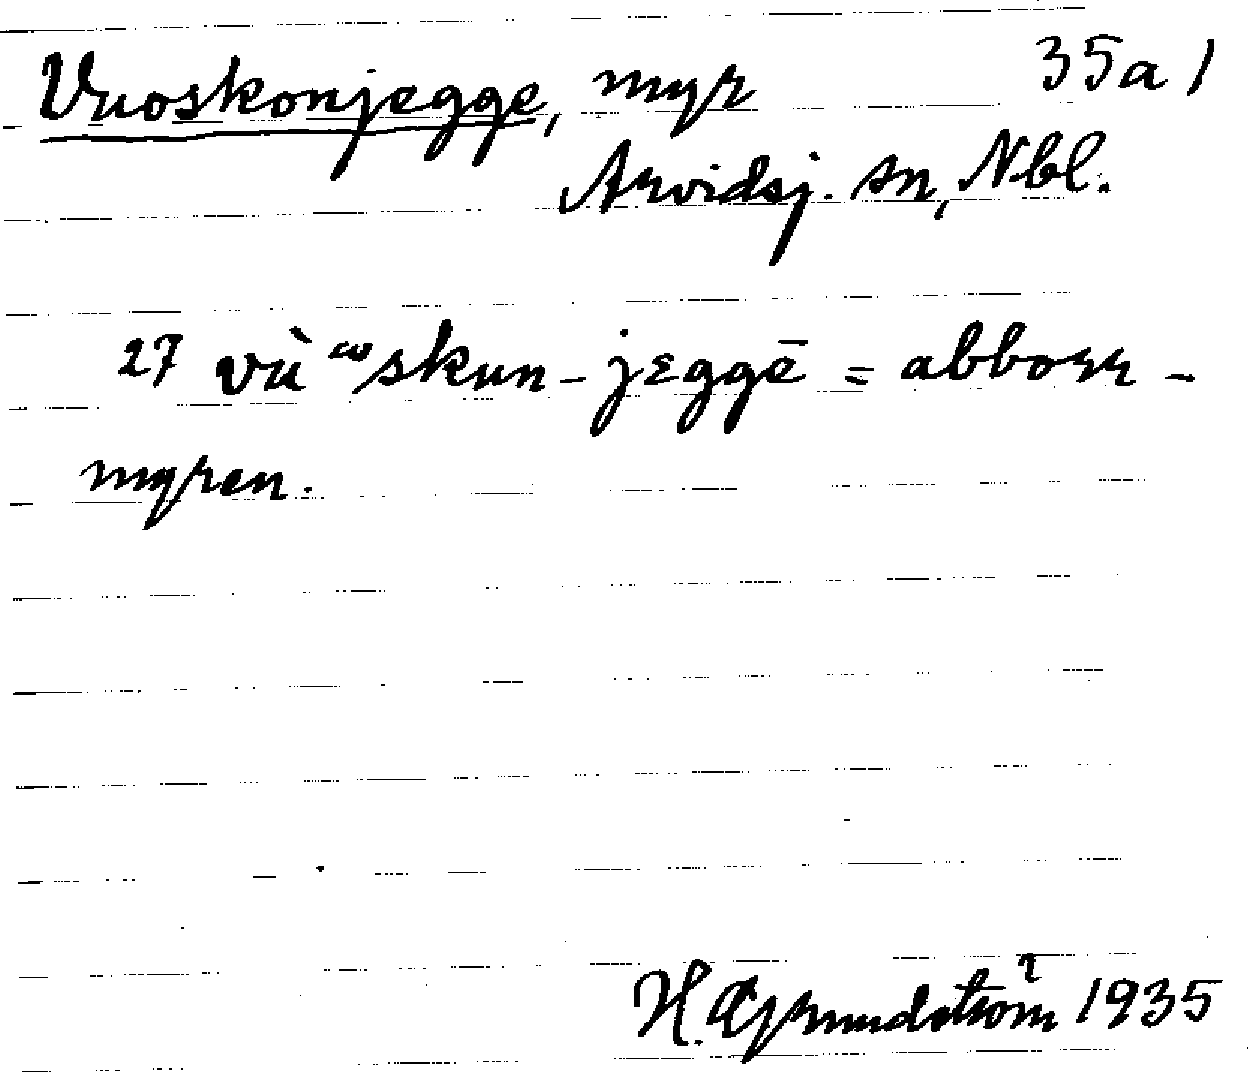 Vuoskonjegge, myr 35a1
Arvidsj. sn, Nbl.
27 vùωskun-jεggē = abborr-
myren.
H. Grundström 1935